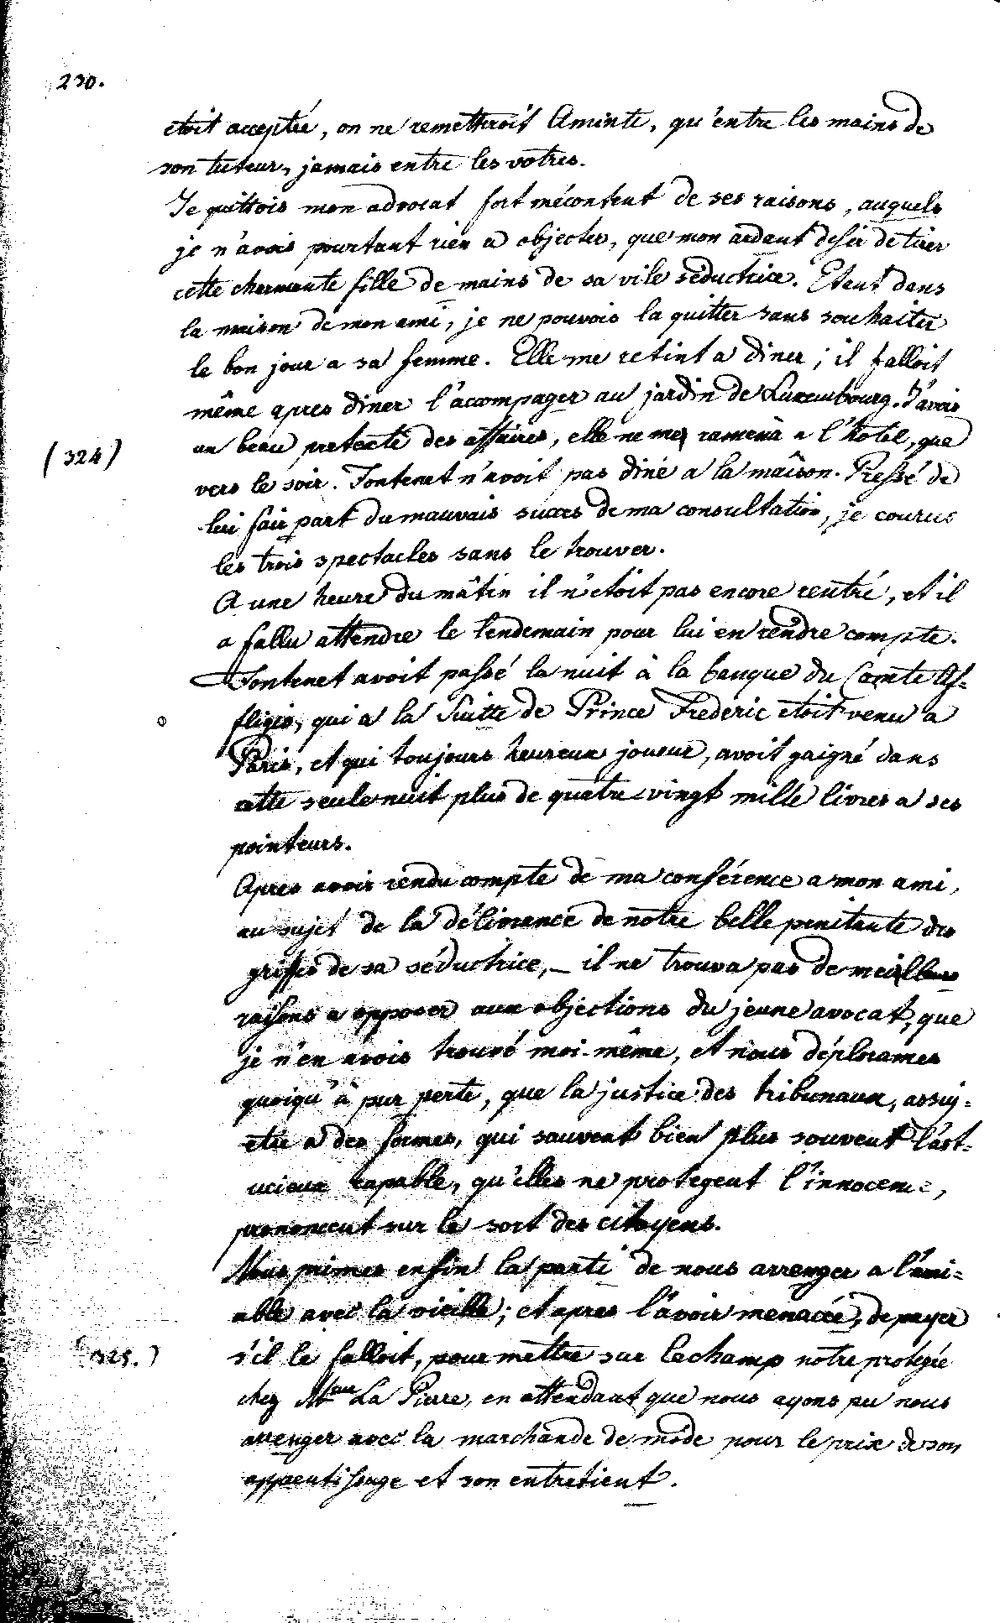 230.
etoit acceptée, on ne remetteroit Aminte, qu'entre les mains de
son tuteur, jamais entre les votres.
Je quittois mon advocat fort mécontent de ses raisons, auquels
je n'avois pourtant rien a objecter, que mon ardent desir de tirer
cette charmante fille de mains de sa vile séductrice. Etant dans
la maison de mon ami, je ne pouvois la quitter sans souhaiter
le bon jour a sa femme. Elle me retint a diner; il falloit
même apres diner l'accompager au jardin de Luxembourg. J'avois
un beau pretexte des affaires, elle ne me ramena a l'hotel, que
(324)
vers le soir. Fontenet n'avoit pas diné a la maison. Pressé de
lui fair part du mauvais succes de ma consultation, je courus
les trois spectacles sans le trouver.
A une heure du mâtin il n'etoit pas encore rentré, et il
a fallu attendre le lendemain pour lui en rendre compte.
Fontenet avoit passé la nuit à la banque du Comte Af-
fligio, qui a la Suitte de Prince Frederic etoit venu a
Paris, et qui toujours heureux joueur, avoit gaigné dans
cette seule nuit plus de quatre vingt mille livres a ses
pointeurs.
Apres avoir rendu compte de ma conférence a mon ami,
au sujet de la délivrence de notre belle penitante des
griffes de sa séductrice, – il ne trouva pas de meilleurs
raisons a opposer aux objections du jeune avocat, que
je n'en avois trouvé moi-même, et nous déplorames
quoiqu'à pur perte, que la justice des tribunaux, assuj=
etie a des formes, qui sauvent bien plus souvent l'ast-
ucieux capable, qu'elles ne protegent l'innocence,
prononcent sur le sort des citoyens.
Nous primes enfin la parti de nous arrenger a l'ami=
able avec la vieille; et apres l'avoir menacée, de payer
(325.)
s'il le falloit, pour mettre sur le champ notre protégée
chez Mme La Pierre, en attendant que nous ayons pu nous
arrenger avec la marchande de mode pour le prix de son
apprentissage et son entretient.